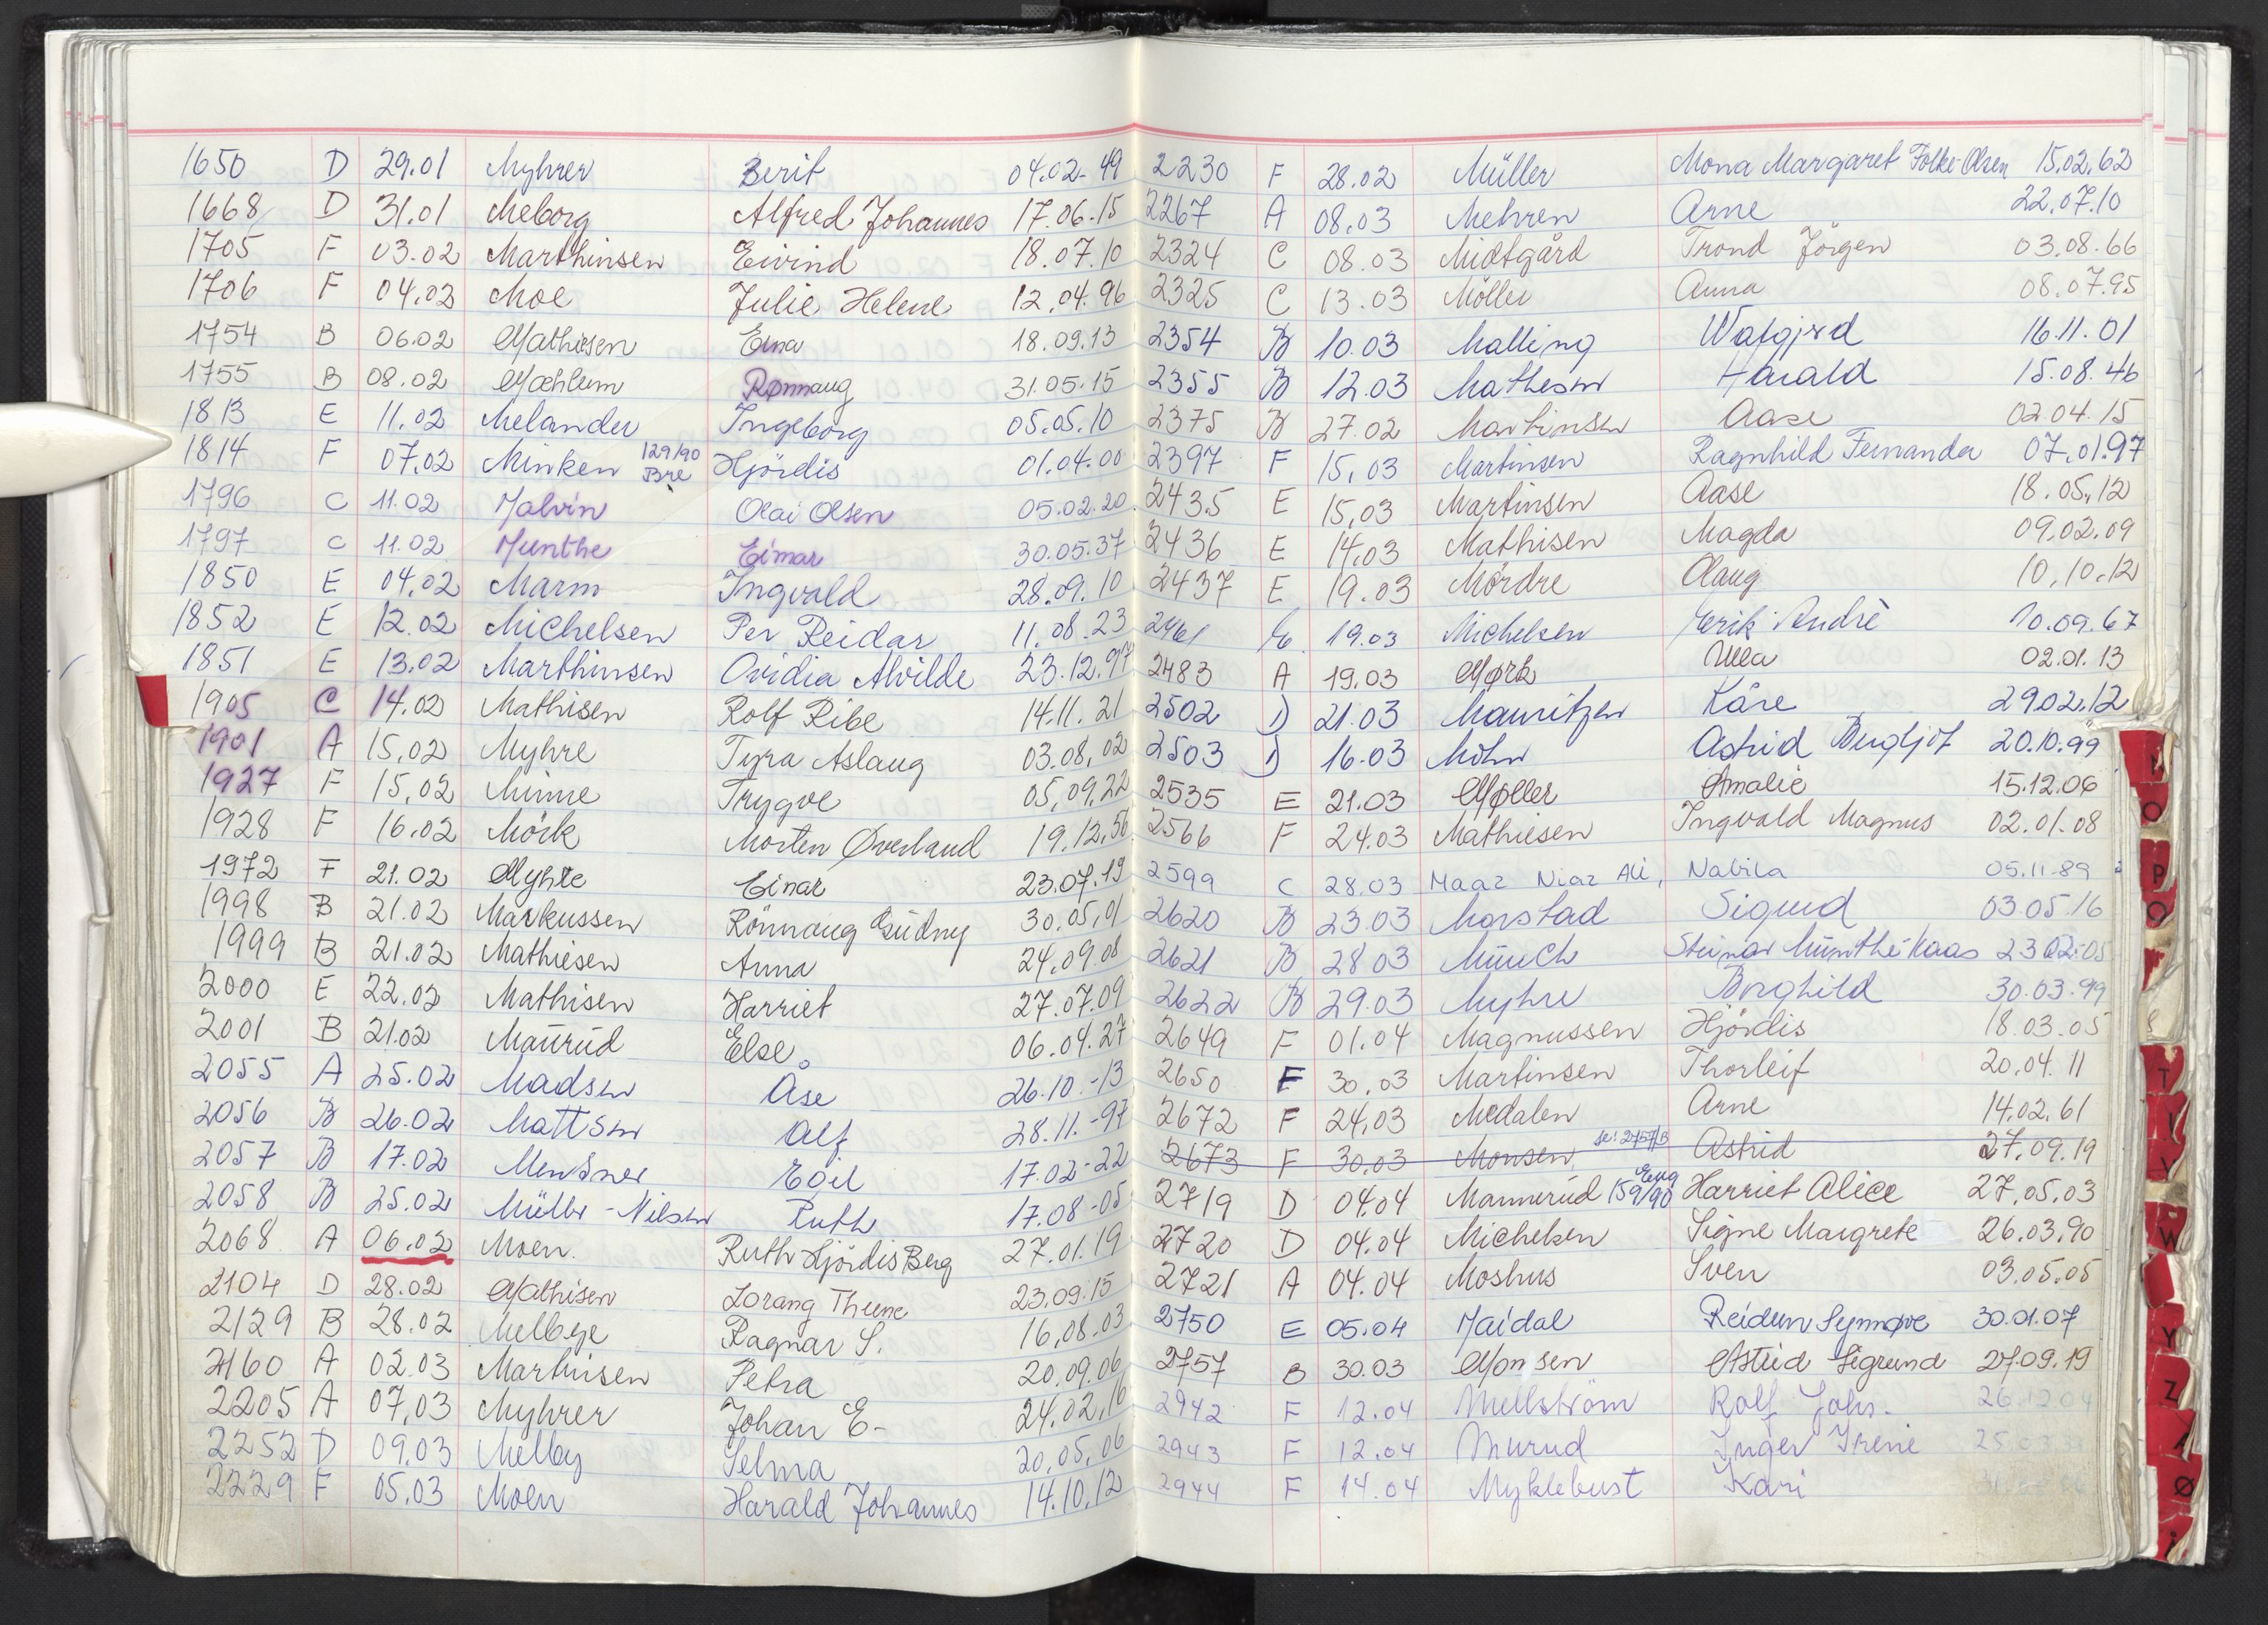 1650 D 29.01 Myhrer Berit 04.02-49
1668 D 31.01 Meborg Alfred Johannes 17.06.15
1705 F 03.02 Marthinsen Eivind 18.07.10
1706 F 04.02 Moe Julie Helene 12.04.96
1754 B 06.02 Mathisen Erna 18.09.13
1755 B 08.02 Mæhlum Rønnaug 31.05.15
1813 E 11.02 Melander Ingeborg 05.05.10
1814 F 07.02 Minken 129/90 Bre Hjördis 01.04.00
1796 C 11.02 Malvin Olai Olsen 05.02.20
1797 C 11.02 Munthe Eimar 30.05.37
1850 E 04.02 Marm Ingvald 28.09.10
1852 E 12.02 Michelsen Per Reidar 11.08.23
1851 E 13.02 Marthinsen Ovidia Alvilde 23.12.97
1905 C 14.02 Mathisen Rolf Ribe 14.11.21
1901 A 15.02 Myhre Tyra Aslaug 03.08.02
1927 F 15.02 Minne Trygve 05.09.22
1928 F 16.02 Mörk Morten Øverland 19.12.56
1972 F 21.02 Myhre Einar 23.07.19
1998 B 21.02 Markussen Rönnaug Gudny 30.05.01
1999 B 21.02 Mathiesen Anna 24.09.08
2000 E 22.02 Mathisen Harriet 27.07.09
2001 B 21.02 Maurud Else 06.04.27
2055 A 25.02 Madsen Åse 26.10.-13
2056 B 26.02 Mattson Alf 28.11.-97
2057 B 17.02 Egil 17.02-22
2058 B 25.02 Müller-Nilsen Ruth 17.08-05
2068 A 06.02 Moen. Ruth Hjördis Berg 27.01.19
2104 D 28.02 Mathisen Lorang Thune 23.09.15
2129 B 28.02 Melbye Ragnar S. 16.08.03
2160 A 02.03 Marthinsen Petra 20.09.06
2205 A 07.03 Myhrer Johan E- 24.02.16
2252 D 09.03 Melby Selma 20.05.06
2229 F 05.03 Moen Harald Johannes 14.10.12
2230 F 28.02 Müller Mona Margaret Folke-Olsen 15.02.62
2267 A 08.03 Mehren Arne 22.07.10
2324 C 08.03 Midtgård Trond Jörgen 03.08.66
2325 C 13.03 Möller Anna 08.07.95
2354 B 10.03 Malling 16.11.01
2355 B 12.03 Mathesen Harald 15.08.46
2375 B 27.02 Martinsen Aase 02.04.15
2397 F 15.03 Martinsen Ragnhild Fernanda 07.01.97
2435 E 15.03 Martinsen Aase 18.05.12
2436 E 14.03 Mathisen Magda 09.02.09
2437 E 19.03 Mördre Olaug 10.10.12
2461 E 19.03 Michelsen Erik Andrè 10.09.67
2483 A 19.03 Mørk Ulla 02.01.13
2502 D 21.03 Mauritzen Kåre 29.02.12
2503 D 16.03 Mohn Astrid Bergljot 20.10.99
2535 E 21.03 Møller Amalie 15.12.06
2566 F 24.03 Mathiesen Ingvald Magnus 02.01.08
2599 C 28.03 Maaz Niaz Ali, Nabila 05.11.89
2620 B 23.03 Morstad Sigurd 03.05.16
2621 B 28.03 Münch Steinar Munthe Kaas 23.02.05
2622 B 29.03 Myhre Borghild 30.03.99
2649 F 01.04 Magnussen Hjördis 18.03.05
2650 F 30.03 Martinsen Thorleif 20.04.11
2672 F 24.03 Medalen Arne 14.02.61
2673 F 30.03 Monsen se: 2757/B Astrid 27.09.19
2719 D 04.04 Mannerud Eng 159/90 Harriet Alice 27.05.03
2720 D 04.04 Michelsen Signe Margrete 26.03.90
2721 A 04.04 Moshus Sven 03.05.05
2750 E 05.04 Maidal Reidun Synnøve 30.01.07
2757 B 30.03 Monsen Astrid Sigrund 27.09.19
2942 F 12.04 Mellström Rolf Johs. 26.12.04
2943 F 12.04 Murud Inger Irene
2944 F 14.04 Myklebust Kari
O
P
Q
T
V
W
Y
Z
Ø